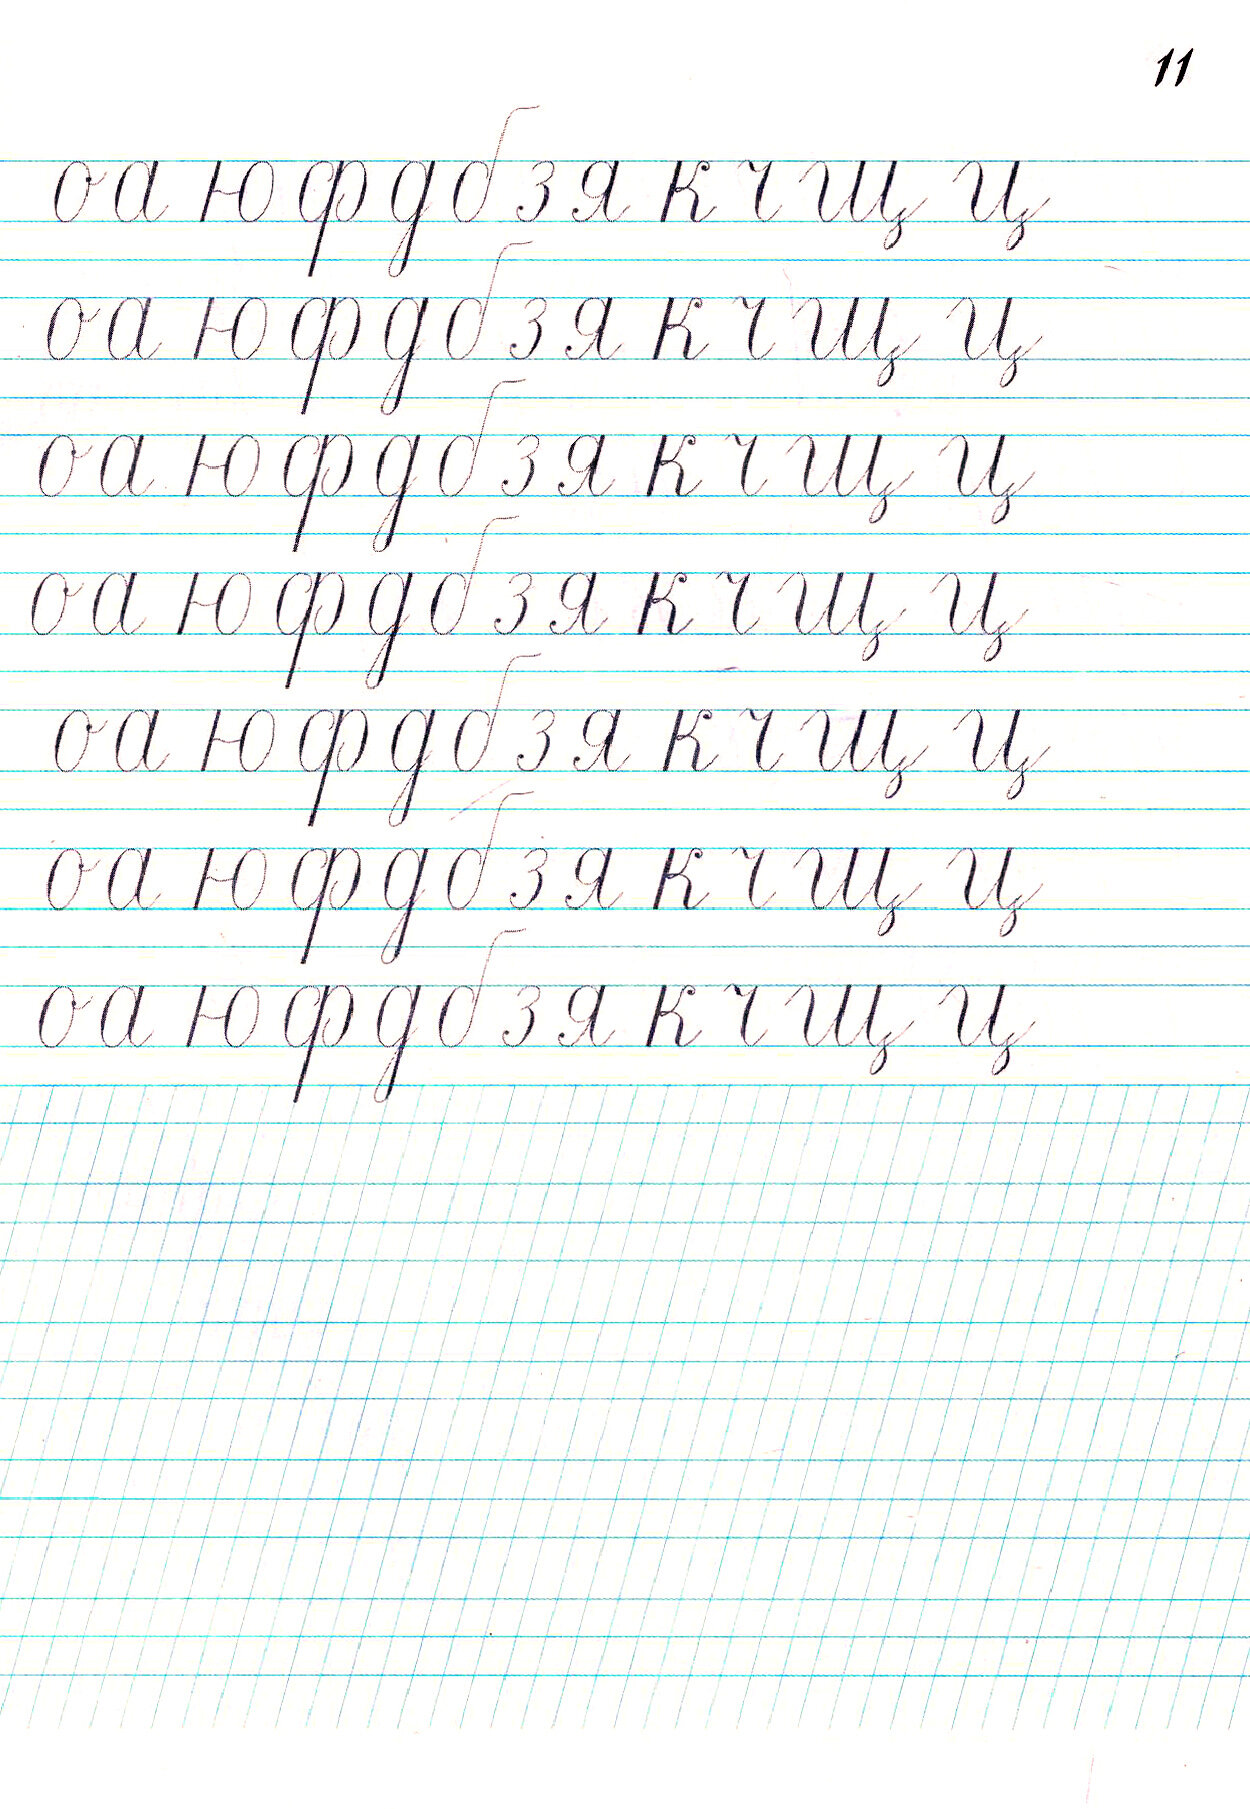 11
о а ю ф д б з я к ч щ ц
о а ю ф д б з я к ч щ ц
о а ю ф д б з я к ч щ ц
о а ю ф д б з я к ч щ ц
о а ю ф д б з я к ч щ ц
о а ю ф д б з я к ч щ ц
о а ю ф д б з я к ч щ ц